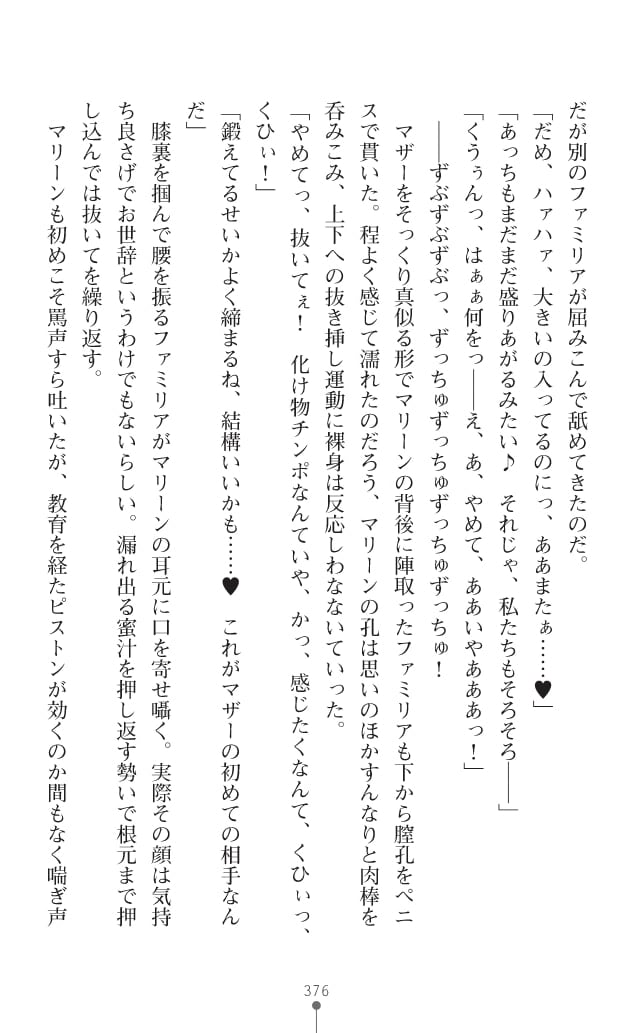 だが別のファミリアが屈みこんで舐めてきたのだ。
「だめ、ハァハァ、大きいの入ってるのにっ、ああまたぁ……♥」
「あっちもまだまだ盛りあがるみたい♪　それじゃ、私たちもそろそろ――」
「くうぅんっ、はぁぁ何をっ――え、あ、やめて、ああいやあああっ！」
――ずぶずぶずぶっ、ずっちゅずっちゅずっちゅずっちゅ！
マザーをそっくり真似る形でマリーンの背後に陣取ったファミリアも下から膣孔をペニ
スで貫いた。程よく感じて濡れたのだろう、マリーンの孔は思いのほかすんなりと肉棒を
呑みこみ、上下への抜き挿し運動に裸身は反応しわなないていった。
「やめてっ、抜いてぇ！　化け物チンポなんていや、かっ、感じたくなんて、くひぃっ、
くひぃ！」
「鍛えてるせいかよく締まるね、結構いいかも……♥　これがマザーの初めての相手なん
だ」
膝裏を掴んで腰を振るファミリアがマリーンの耳元に口を寄せ囁く。実際その顔は気持
ち良さげでお世辞というわけでもないらしい。漏れ出る蜜汁を押し返す勢いで根元まで押
し込んでは抜いてを繰り返す。
マリーンも初めこそ罵声すら吐いたが、教育を経たピストンが効くのか間もなく喘ぎ声
376